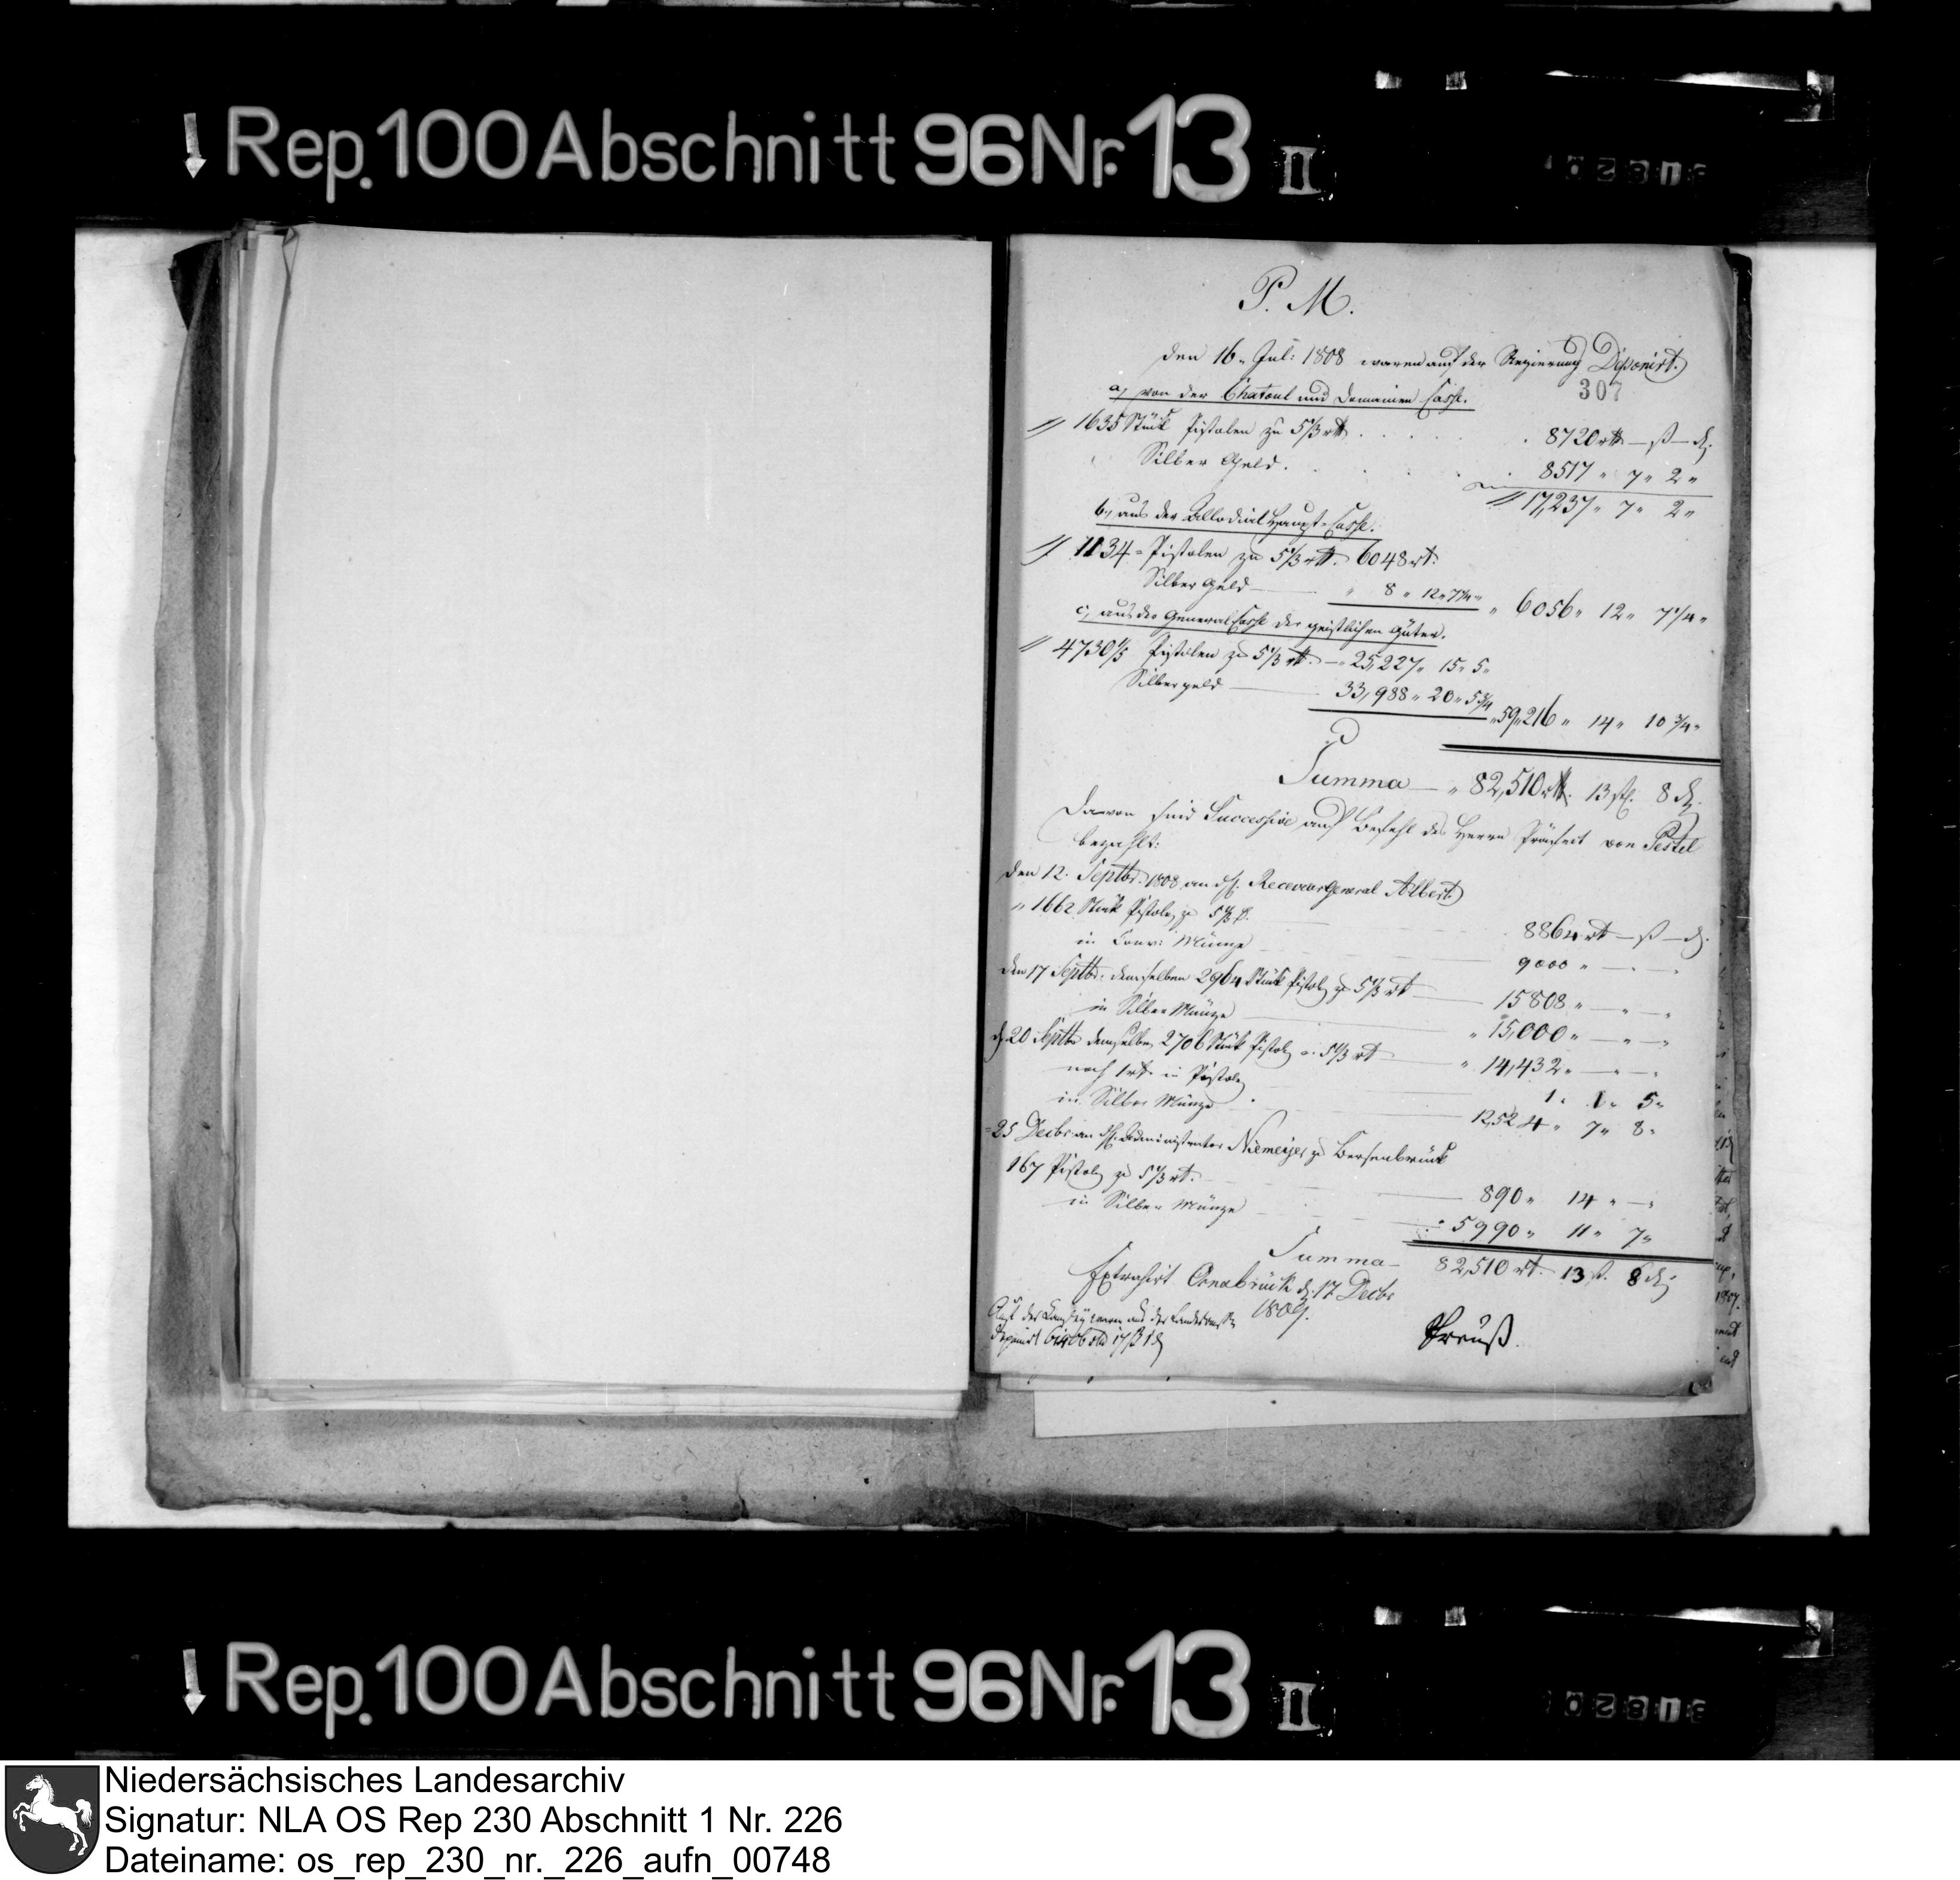 Rep. 100 Abschnitt 96 Nr. 13 II
P. M.
den 16. Jul: 1808 waren auf der Regierung Deponirt.
307
a) von der Chatoul und Domainen Casse.
1635 Stück Pistolen zu 5⅓ rt . . . . 8720 rt — ß — d.
Silber Geld. . . . 8517 " 7 " 2 "
17,237 " 7 " 2 "
b, aus der Allodial Haupt-Casse.
1134 Pistolen zu 5⅓ rt. 6048 rt.
Silber Geld — " 8 " 12 " 7¼ " " 6056 " 12 " 7¼ "
c, aus der General Casse der geistlichen Güter.
4730⅕ Pistolen zu 5⅓ rt. — " 25,227 " 15 " 5 "
Silbergeld — 33,988 " 20 " 5¾ " 59,216 " 14 " 10¾ "
Summa — " 82,510 rt. 13 ß. 8 d.
Davon sind Successive auf Befehl des Herrn Präfect von Pestel
bezahlt:
den 12. Septbr. 1808 an H. Receveur General Albert
" 1662 Stück Pistolen zu 5⅓ rt. 8864 rt — ß — d.
in Conv: Münze 9000 " — " — "
den 17 Septbr. demselben 2964 Stück Pistolen zu 5⅓ rt — 15808 " — " — "
in Silber Münze — " 15,000 " — " — "
d. 20 Septbr demselben 2706 Stück Pistolen a 5⅓ rt — " 14,432 " — " — "
noch 1 rt. in Pistolen 1 " 1 " 5 "
in Silber Münze — 12,524 " 7 " 8 "
25 Decbr an H. Administrator Niemeyer zu Bersenbrück
167 Pistolen zu 5⅓ rt. — 890 " 14 " — "
in Silber Münze — " 5990 " 11 " 7 "
Summa — 82,510 rt. 13 ß. 8 d.
Extrahirt Osnabrück d. 17 Decbr
1809.
Auf der Canzley waren aus der Landescasse
deponirt
Preuß.
Rep. 100 Abschnitt 96 Nr. 13 II
Niedersächsisches Landesarchiv
Signatur: NLA OS Rep 230 Abschnitt 1 Nr. 226
Dateiname: os_rep_230_nr._226_aufn_00748